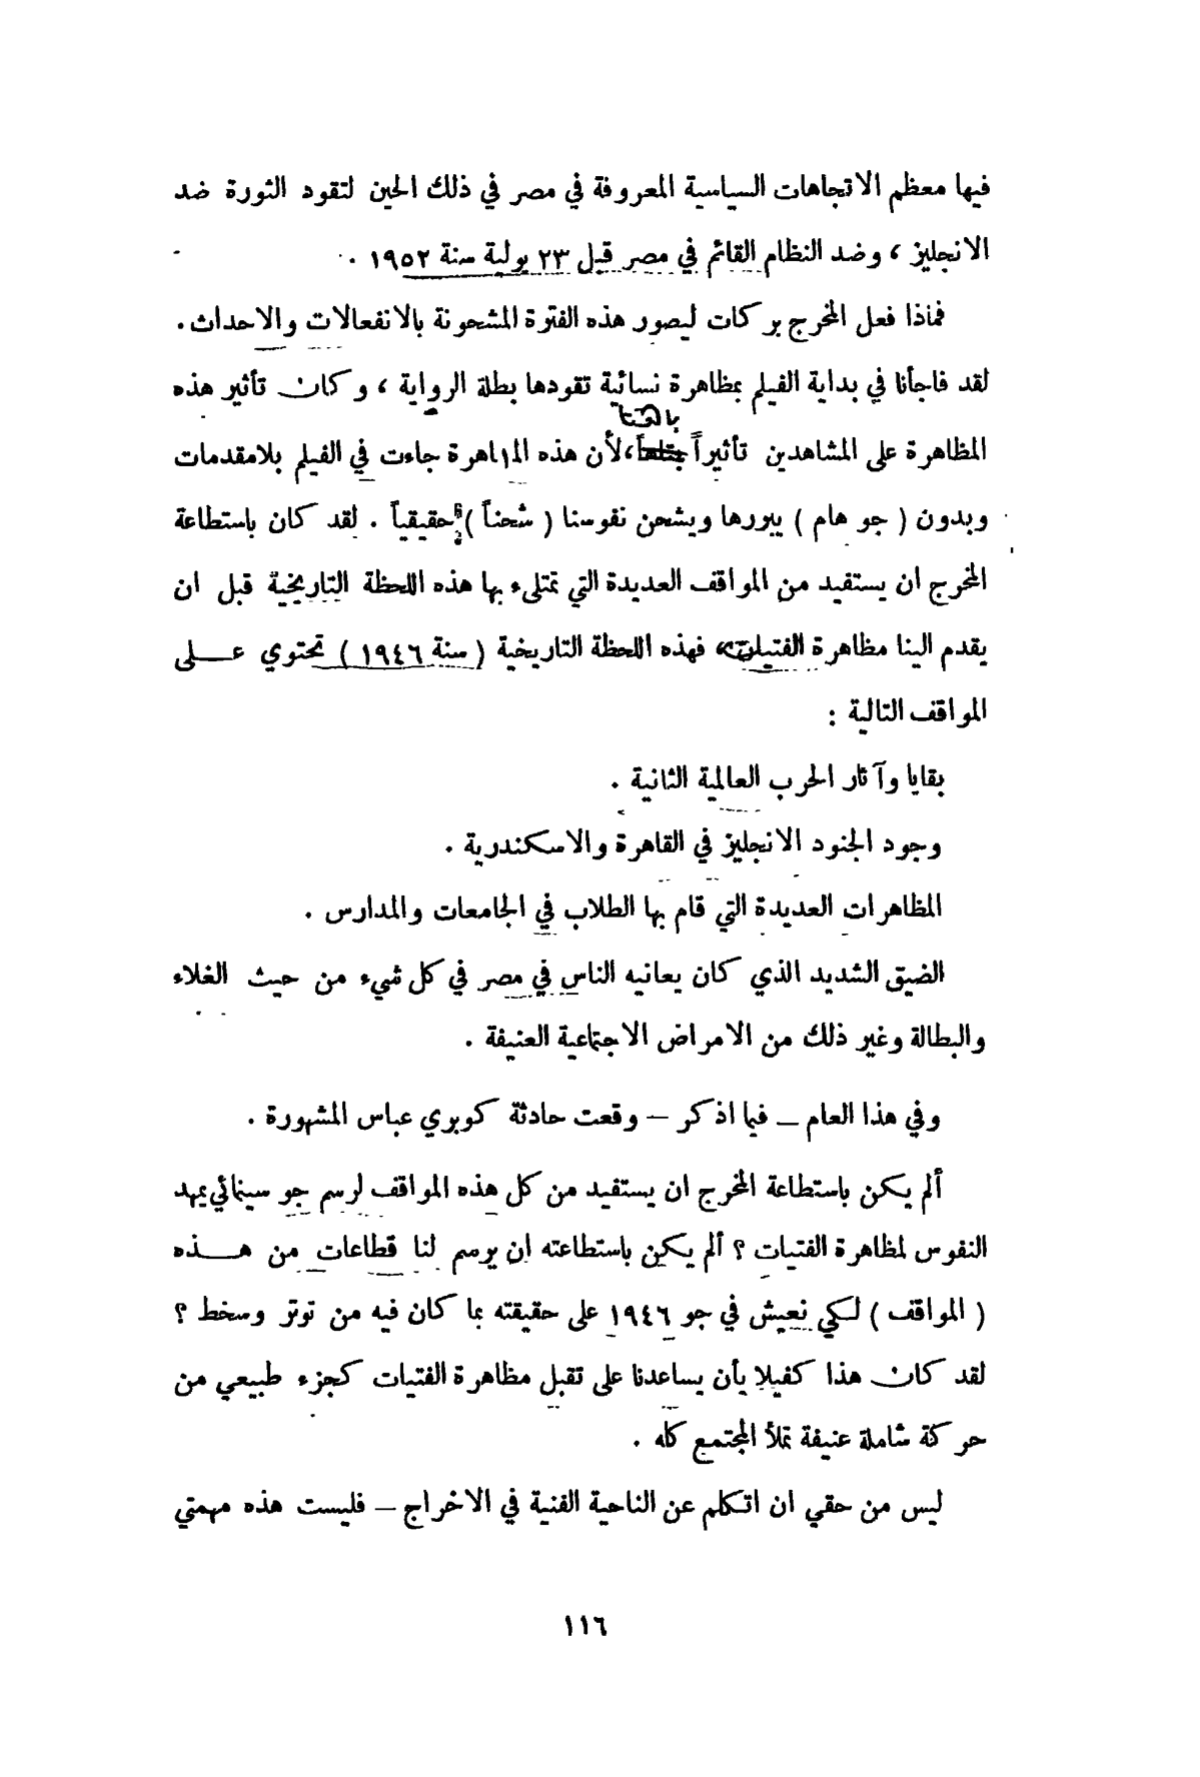 فيها معظم الاتجاهات السياسية المعروفة في مصر في ذلك الحين لتقود الثورة ضد
الانجليز ، وضد النظام القائم في مصر قبل ٢٣ يولية سنة ١٩٥٢ .
فماذا فعل المخرج بركات ليصور هذه الفترة المشحونة بالانفعالات والاحداث .
لقد فاجأنا في بداية الفيلم بمظاهرة نسائية تقودها بطلة الرواية ، وكان تأثير هذه
المظاهرة على المشاهدين تأثيراً ، لأن هذه المظاهرة جاءت في الفيلم بلامقدمات
وبدون ( جو هام ) يبررها ويشحن نفوسنا ( شحناً ) حقيقياً . لقد كان باستطاعة
المخرج ان يستفيد من المواقف العديدة التي تمتلىء بها هذه اللحظة التاريخية قبل ان
يقدم الينا مظاهرة الفتيات ، فهذه اللحظة التاريخية ( سنة ١٩٤٦ ) تحتوي عــلى
المواقف التالية :
بقايا وآثار الحرب العالمية الثانية .
وجود الجنود الانجليز في القاهرة والاسكندرية .
المظاهرات العديدة التي قام بها الطلاب في الجامعات والمدارس .
الضيق الشديد الذي كان يعانيه الناس في مصر في كل شيء من حيث الغلاء
والبطالة وغير ذلك من الامراض الاجتماعية العنيفة .
وفي هذا العام – فيما اذكر – وقعت حادثة كوبري عباس المشهورة .
ألم يكن باستطاعة المخرج ان يستفيد من كل هذه المواقف لرسم جو سينمائي يمهد
النفوس لمظاهرة الفتيات ؟ ألم يكن باستطاعته ان يرسم لنا قطاعات من هــذه
( المواقف ) لكي نعيش في جو ١٩٤٦ على حقيقته بما كان فيه من توتر وسخط ؟
لقد كان هذا كفيلا بأن يساعدنا على تقبل مظاهرة الفتيات كجزء طبيعي من
حركة شاملة عنيفة تملأ المجتمع كله .
ليس من حقي ان اتكلم عن الناحية الفنية في الاخراج – فليست هذه مهمتي
١١٦